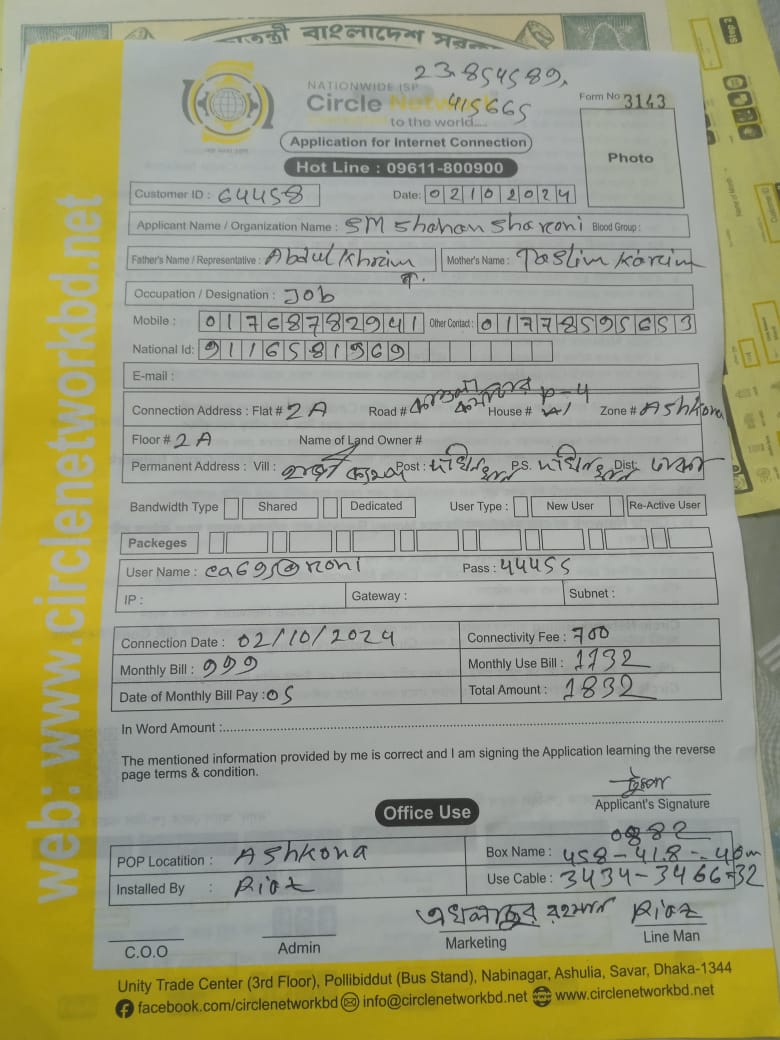 বাংলাদেশ
Step 2
23.854589,
NATIONWIDE ISP
415665
Circle Network
to the world....
Form No 3143
Application for Internet Connection
Photo
Hot Line : 09611-800900
Customer ID : 64458 Date: 02102024
Applicant Name / Organization Name : SM Shahan Sharoni Blood Group :
Father's Name / Representative : Abdul Mother's Name : Taslim Karim
Occupation / Designation : Job
Mobile : 01768782941 Other Contact : 01778595653
National Id: 9116581969
E-mail :
Connection Address : Flat # 2A Road # House # Zone # Ashkona
P-4
Floor # 2A Name of Land Owner #
Permanent Address : Vill : Post : P.S. Dist.
Bandwidth Type Shared Dedicated User Type : New User Re-Active User
Packeges
User Name : ca69@roni Pass : 44455
IP : Gateway : Subnet :
Connection Date : 02/10/2024 Connectivity Fee : 700
Monthly Bill : 999 Monthly Use Bill : 1132
Date of Monthly Bill Pay : 05 Total Amount : 1832
In Word Amount :
The mentioned information provided by me is correct and I am signing the Application learning the reverse
page terms & condition.
Applicant's Signature
Office Use
0882
POP Locatition : Ashkona Box Name : 458-41.8-
Installed By : Riaz Use Cable : 3434-3466=32
রহমান Riaz
C.O.O Admin Marketing Line Man
Unity Trade Center (3rd Floor), Pollibiddut (Bus Stand), Nabinagar, Ashulia, Savar, Dhaka-1344
facebook.com/circlenetworkbd info@circlenetworkbd.net www.circlenetworkbd.net
web: www.circlenetworkbd.net